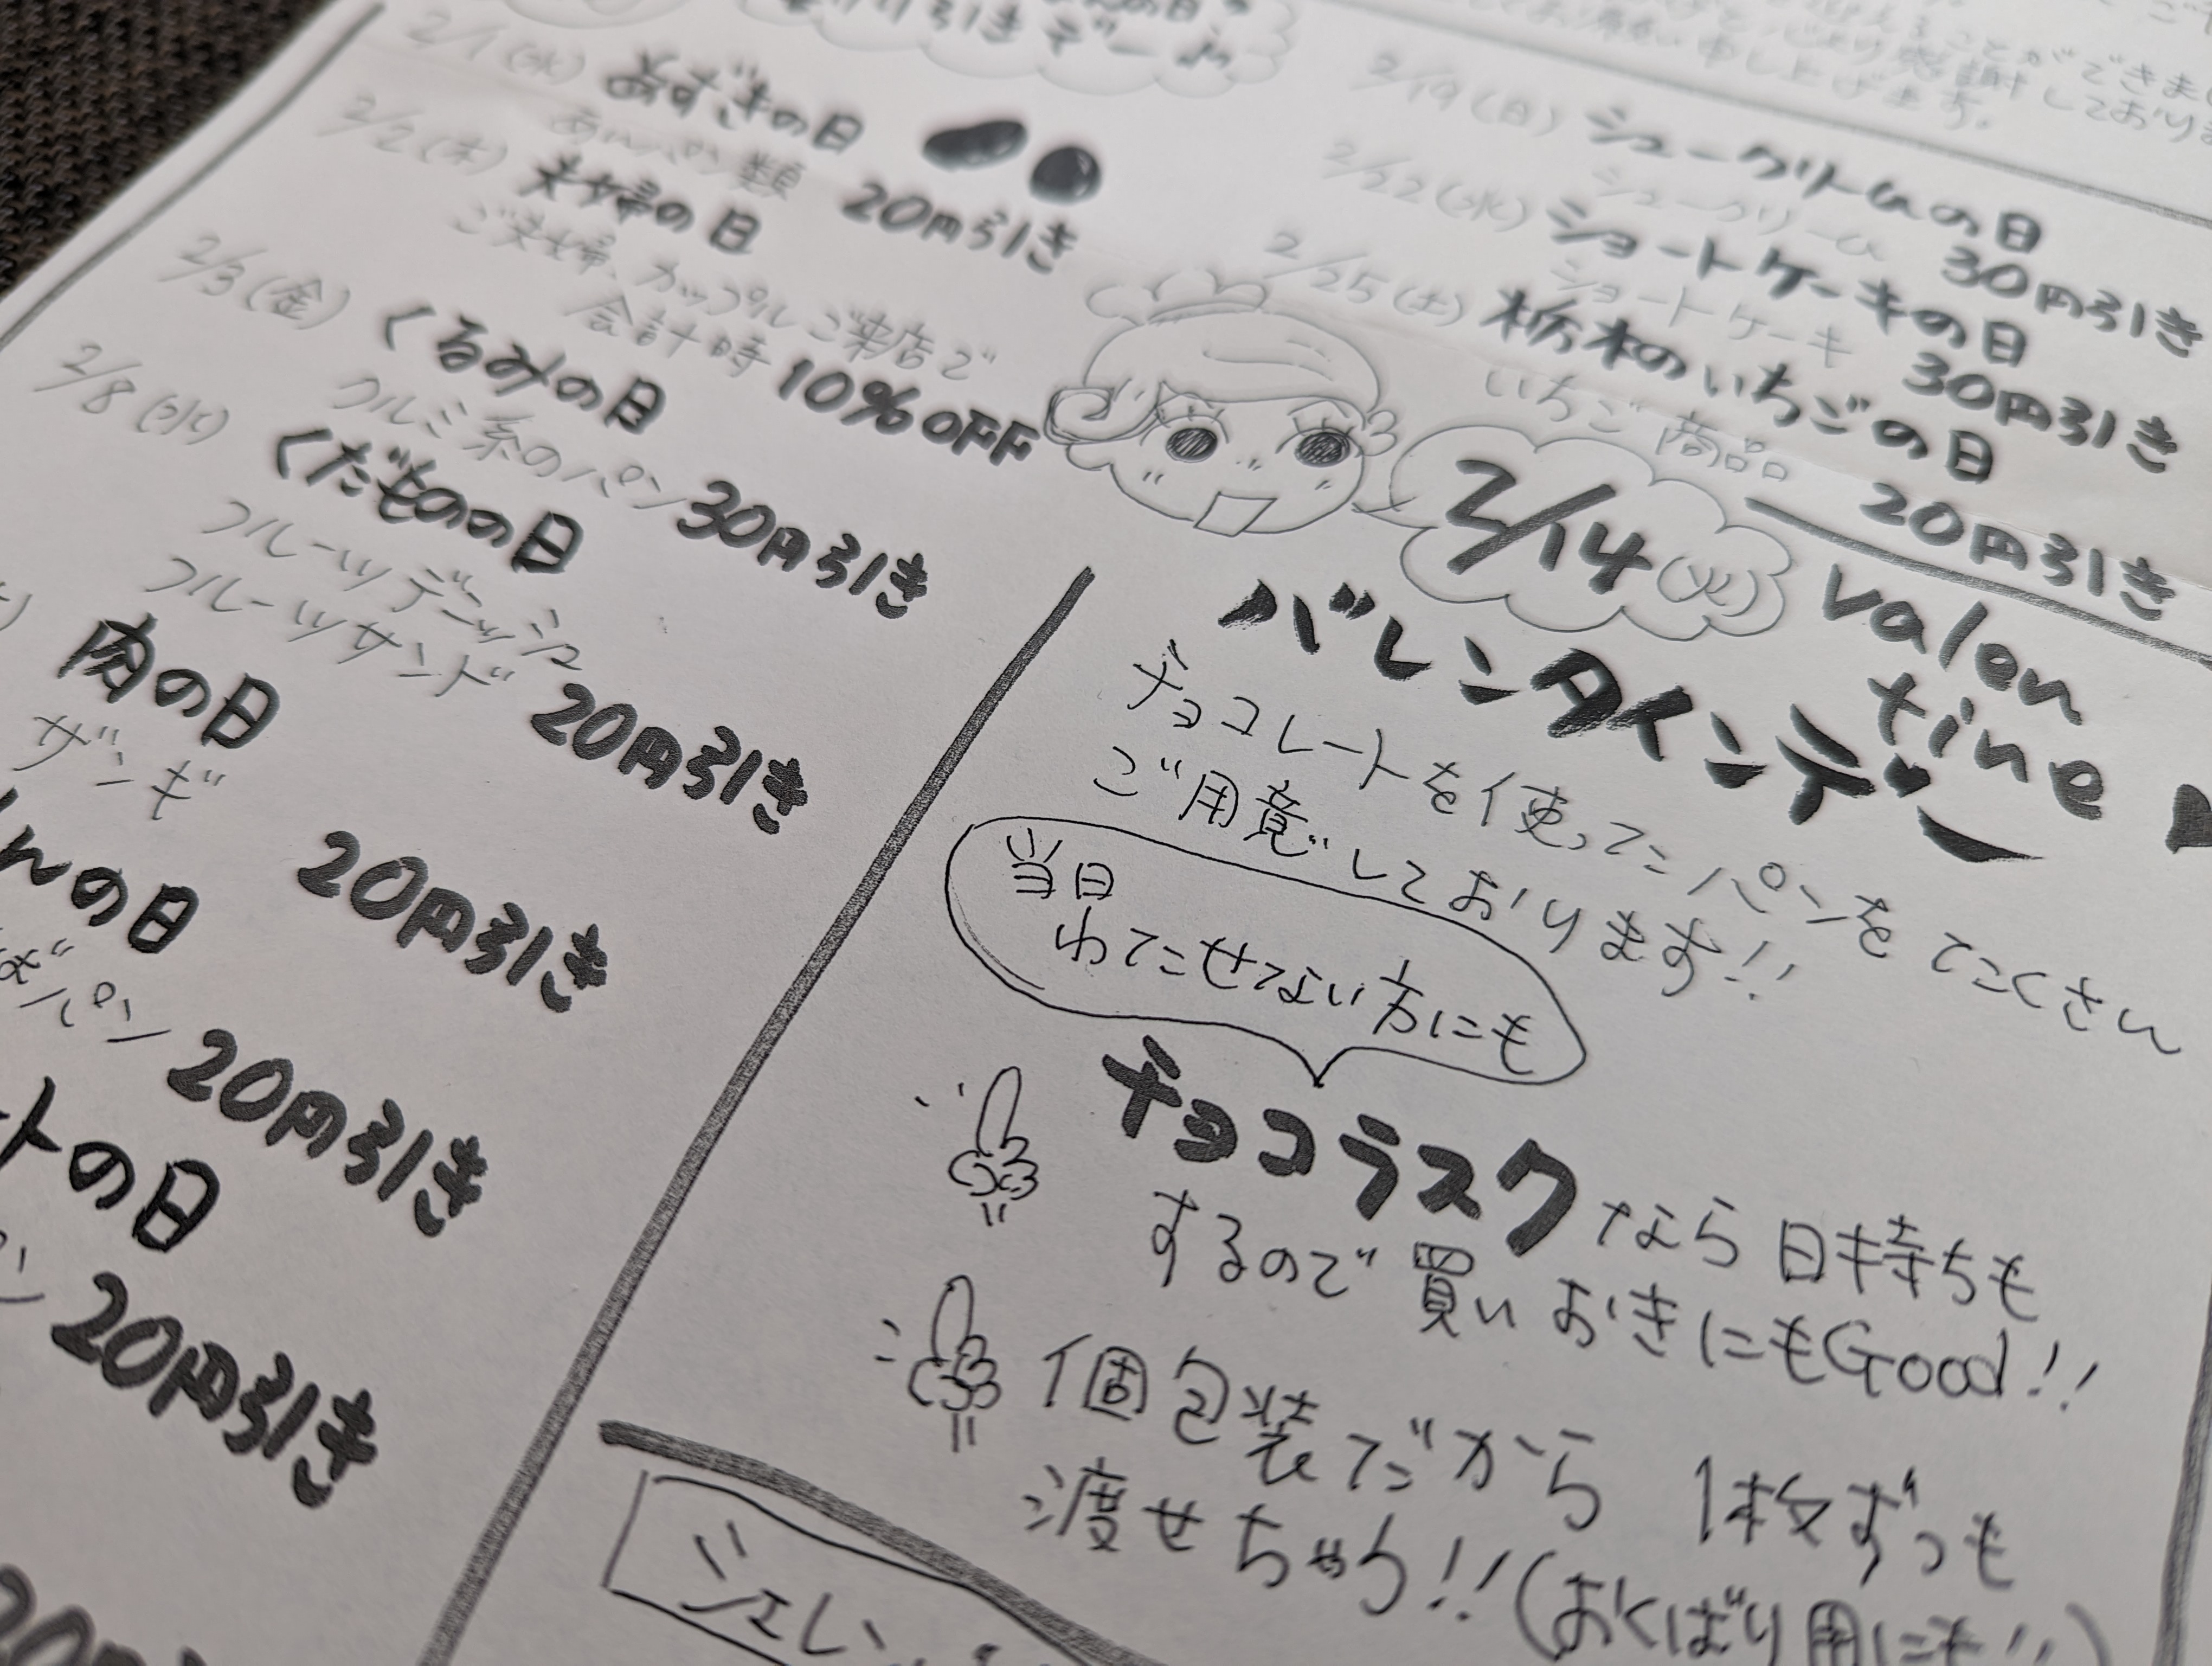 引きデー
2/1(水) あずきの日
あんパン類 20円引き
2/2(木) 夫婦の日
ご夫婦、カップルご来店で
会計時 10%OFF
2/3(金) くるみの日
クルミ系のパン 30円引き
2/8(水) くだものの日
フルーツデニッシュ
フルーツサンド 20円引き
肉の日
ザンギ 20円引き
んの日
パン 20円引き
トの日
ン 20円引き
20円
ことができまし
感謝しており
お願い申し上げます。
2/19(日) シュークリームの日
シュークリーム 30円引き
2/22(水) ショートケーキの日
ショートケーキ 30円引き
2/25(土) 栃木のいちごの日
いちご商品 20円引き
2/14(火)
valen
tine
バレンタインデー
チョコレートを使ったパンをたくさん
ご用意しております!!
当日
わたせない方にも
チョコラスクなら日持ちも
するので買いおきにもGood!!
個包装だから 1枚ずつも
渡せちゃう!!(おくばり用にも!!)
ジェレ